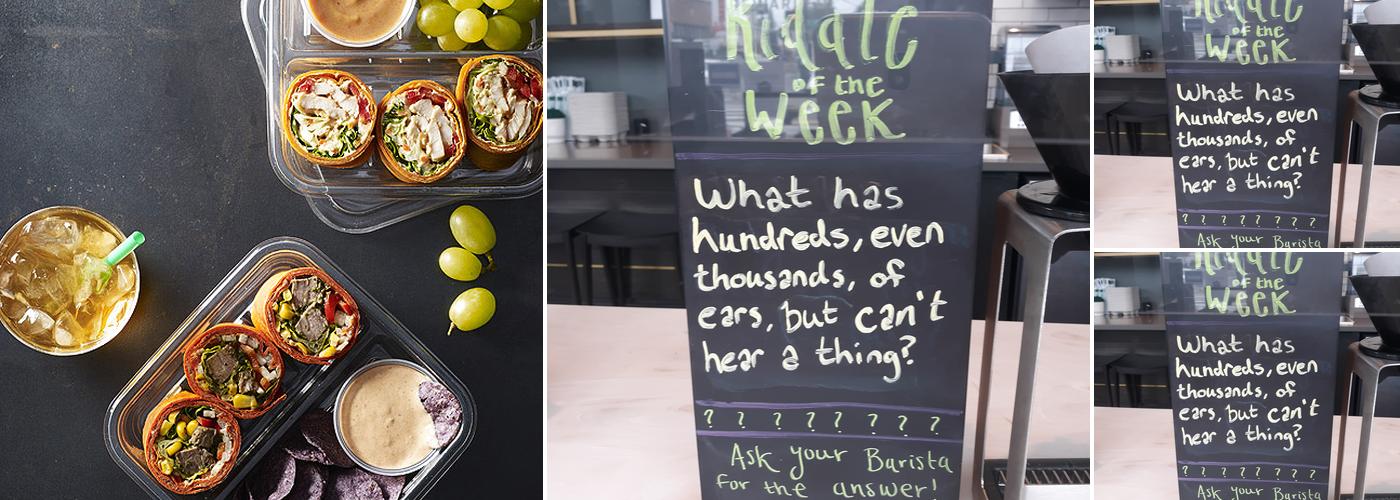 Riddle
of the
WEEK
What has
hundreds, even
thousands, of
ears, but can't
hear a thing?
? ? ? ? ? ? ? ?
Ask your Barista
for the answer!
Riddle
of the
WEEK
What has
hundreds, even
thousands, of
ears, but can't
hear a thing?
? ? ? ? ? ? ? ?
Ask your Barista
Riddle
of the
WEEK
What has
hundreds, even
thousands, of
ears, but can't
hear a thing?
? ? ? ? ? ? ? ?
Ask your Barista